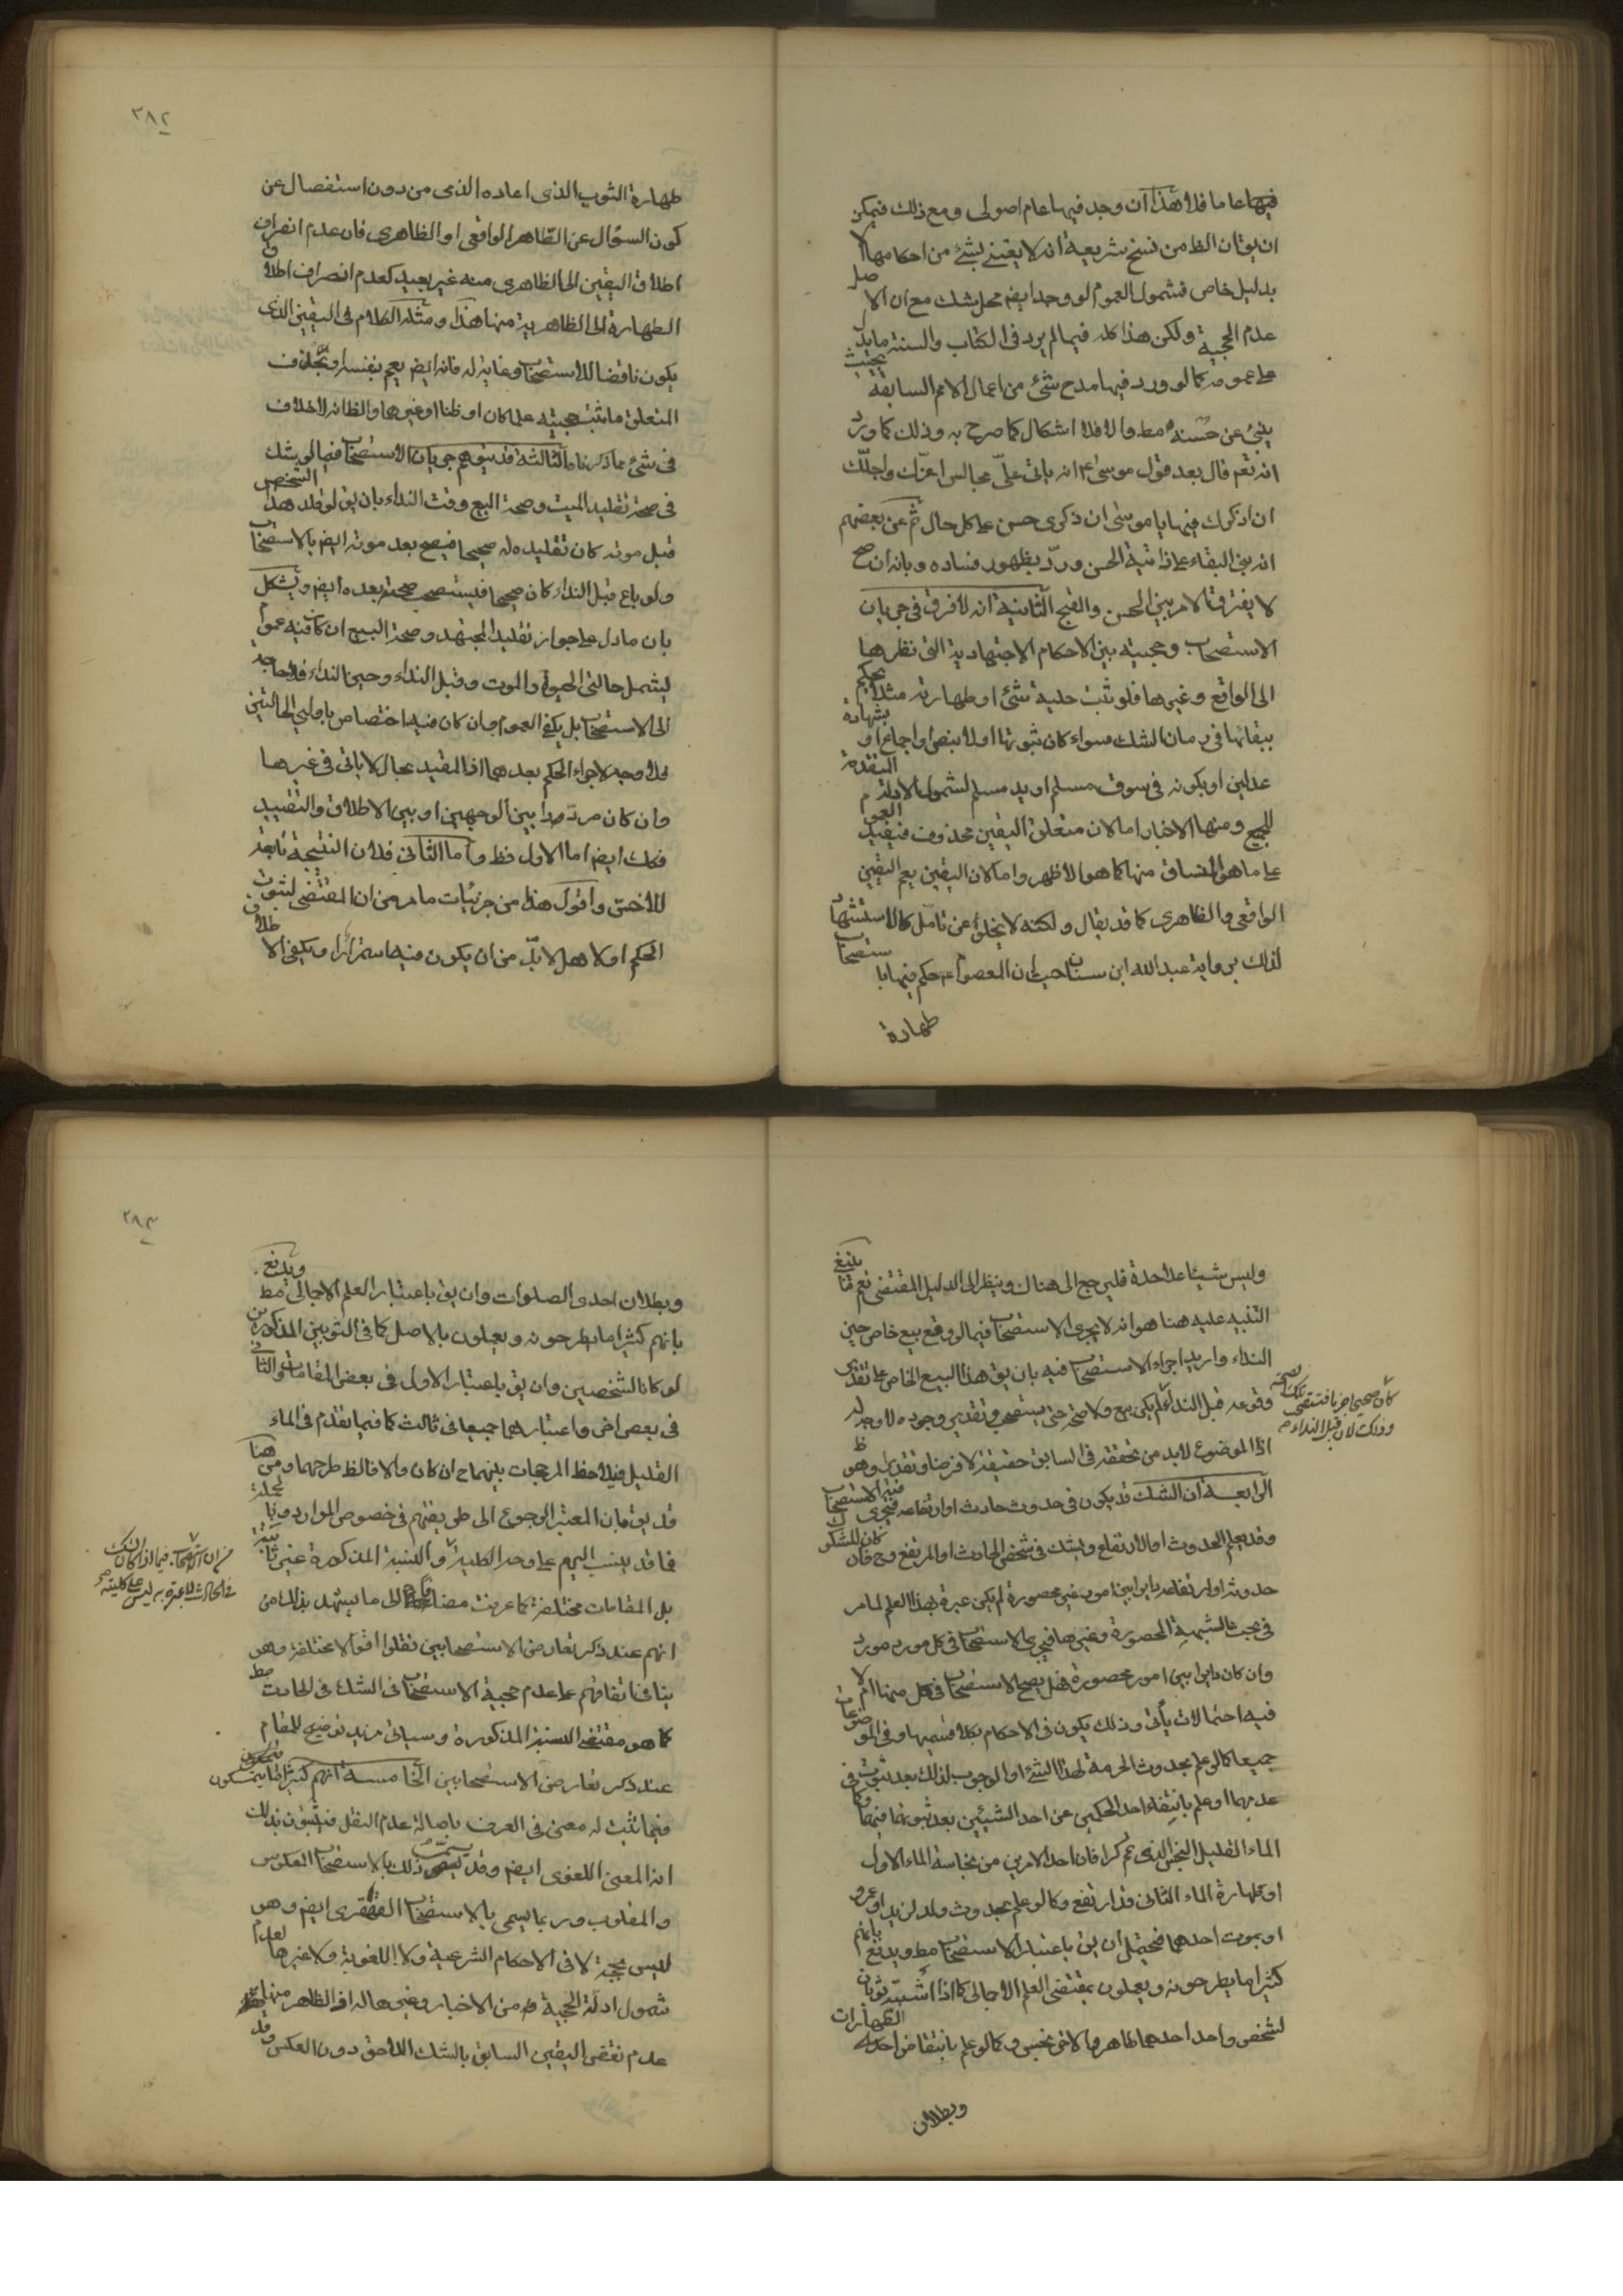 فيها عاما فلا هذا ان وجد فيها عام اصولى ومع ذلك فيمكن
ان يق ان الظ من نسخ شريعية انه لا يعتنى بشئ من احكامها الا
بدليل خاص فشمول العموم لو وجد ايضا محل شك مع ان الاصل
عدم الحجية ولكن هذا كله فيما لم يرد فى الكتاب والسنة ما يدل
على عمومه كما لو ورد فيها مدح شئ من اعمال الامم السابقة بحيث
ينبئ عن حسنه مط والا فلا اشكال كما صرح به وذلك كما ورد
انه تعم قال بعد قول موسى ع انه ياتى علىّ مجالس اعزّك واجلّك
ان اذكرك فيها يا موسى ان ذكرى حسن على كل حال ثم عن بعضهم
انه بنى البقاء على ذاتية الحسن وردّ بظهور فساده وبانه ان صح
لا يفترق الامر بين الحسن والقبح الثانية انه لا فرق فى جريان
الاستصحاب وحجيته بين الاحكام الاجتهادية التى نظرها
الى الواقع وغيرها فلو ثبت حلية شئ او طهارته مثلا يحكم
ببقائها فى زمان الشك سواء كان ثبوتها اولا بنص او اجماع او بشهادة
عدلين او بكونه فى سوق مسلم او يد مسلم لشمول الادلة المتقدمة
للجميع ومنها الاخبار اما لان متعلق اليقين محذوف فيفيد العموم
على ما هو المنساق منها كما هو الاظهر واما لان اليقين يعم اليقين
الواقعى والظاهرى كما قد يقال ولكنه لا يخلو عن تامّل كالاستشهاد
لذلك برواية عبد الله ابن سنان حيث ان المعصوم ع حكم فيها باستصحاب
طهارة
٢٨٢
طهارة الثوب الذى اعاده الذمى من دون استفصال عن
كون السؤال عن الطاهر الواقعى او الظاهرى فان عدم انصراف
اطلاق اليقين الى الظاهرى منه غير بعيد كعدم انصراف اطلاق
الطهارة الى الظاهرية منها هذا ومثله الكلام فى اليقين الذى
يكون ناقضا للاستصحاب وغاية له فانه ايضا يعم بنفسه او بحذف
المتعلق ما ثبت حجيته علما كان او ظنا او غيرها والظاهر لا خلاف
فى شئ مما ذكرناه الثالثة قد يتوهم جريان الاستصحاب فيما لو شك
فى صحة تقليد الميت وصحة البيع وقت النداء بان يق لو قلد هذا الشخص
قبل موته كان تقليده له صحيحا فيصح بعد موته ايضا بالاستصحاب
ولو باع قبل النداء كان صحيحا فيستصحب صحته بعده ايضا ويشكل
بان ما دل على جواز تقليد المجتهد وصحة البيع ان كان فيه عموم
ليشمل حالتى الحيوة والموت وقبل النداء وحين النداء فلا حاجة
الى الاستصحاب بل يكفى العموم وان كان فيه اختصاص باولى الحالتين
فلا وجه لاجراء الحكم بعدهما اذ المقيد بحال لا ياتى فى غيرها
وان كان مردّدا بين الوجهين او بين الاطلاق والتقييد
فكك ايضا اما الاول فظ واما الثانى فلان النتيجة تابعة
للاخس واقول هذا من جزئيات ما مر من ان المقتضى لثبوت
الحكم اولا هل لا بدّ من ان يكون فيه استمرارا ويكفى الاطلاق
وليس شيئا علاحدة فليرجع الى هناك وينظر الى الدليل المقتضى نعم ما ينبغى
التنبيه عليه هنا هو انه لا يجرى الاستصحاب فيما لو وقع بيع خاص حين
النداء واريد اجراء الاستصحاب فيه بان يق هذا البيع الخاص على تقدير
وقوعه قبل النداء لم يكن بيع ولا صحة حتى يستصحب وتقدير وجوده لا وجه له
كان صحيحا جزما فتستصحب تلك الصحة
وذلك لان قبل النداء
اذ الموضوع لا بد من تحققه فى السابق حقيقة لا فرضا وتقديرا وهو ظ
الرابعة ان الشك قد يكون فى حدوث حادث او ارتفاعه فيجرى فيه الاستصحاب
وقد يعلم الحدوث او الارتفاع ويشك فى شخص الحادث او المرتفع وح فان كان المشكوك
حدوثه او ارتفاعه دايرا بين امور غير محصورة لم يكن عبرة بهذا العلم لما مر
فى بحث الشبهة المحصورة وغيرها فيجرى الاستصحاب فى كل مورد مورد
وان كان دايرا بين امور محصورة فهل يصح الاستصحاب فى كل منها ام لا
فيه احتمالات يأتى وذلك يكون فى الاحكام بكلا قسميها وفى الموضوعات
جميعا كما لو علم بحدوث الحرمة لهذا الشئ او الوجوب لذلك بعد ثبوت
عدمهما او علم بانتفاء احد الحكمين عن احد الشيئين بعد ثبوتها فيهما وكما فى
الماء القليل النجس الذى تمّ كرا فان احد الامرين من نجاسة الماء الاول
او طهارة الماء الثانى قد ارتفع وكما لو علم بحدوث ولد لزيد او عمرو
او بموت احدهما فيحتمل ان يق باعتبار الاستصحاب مط ويدفع بانهم
كثيرا ما يطرحونه ويعملون بمقتضى العلم الاجمالى كما اذا اشتبه ثوبان
لشخص واحد احدهما طاهر والاخر نجس وكما لو علم بانتقاض احد الطهارات
وبطلان
٢٨٣
وبطلان احدى الصلوات وان يق باعتبار العلم الاجمالى مط ويدفع
بانهم كثيرا ما يطرحونه ويعملون بالاصل كما فى الثوبين المذكورين
لو كانا لشخصين وان يق باعتبار الاول فى بعض المقامات والثانى
فى بعض اخر واعتبارهما جميعا فى ثالث كما فيما تقدم فى الماء
القليل فيلاحظ المرجحات بينهما ح ان كان والا فالظ طرحهما ومن هنا
قد يق بان المعتبر الرجوع الى طريقتهم فى خصوص الموارد وبالجملة
فما قد ينسب اليهم على وجه الكلية والنسبة المذكورة غير ثابتة
من ان الاستصحاب فيما اذا كان الشك
فى الحادث لا عبرة به ليس على كليته
بل المقامات مختلفة كما عرفت مضافا الى ما يشهد بذلك من
انهم عند ذكر تعارض الاستصحابين نقلوا اقوالا مختلفة وهو
ينافى اتفاقهم على عدم حجية الاستصحاب فى الشك فى الحادث مط
كما هو مقتضى النسبة المذكورة وسيأتى مزيد توضيح للمقام
عند ذكر تعارض الاستصحابين الخامسة انهم كثيرا ما يتمسكون
فيما ثبت له معنى فى العرف باصالة عدم النقل فيثبتون بذلك
انه المعنى اللغوى ايضا وقد يسمى ذلك بالاستصحاب المعكوس
والمقلوب وربما يسمى بالاستصحاب القهقرى ايضا وهو
ليس بحجة لا فى الاحكام الشرعية ولا اللغوية ولا غيرها لعدم
شمول ادلة الحجية له من الاخبار وغيرها له اذ الظاهر منها
عدم نقض اليقين السابق بالشك اللاحق دون العكس وقد